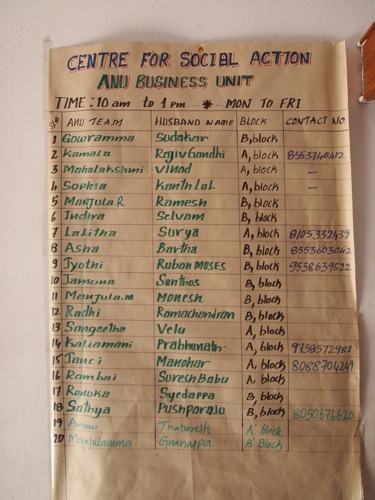 CENTRE FOR SOCIAL ACTION
ANU BUSINESS UNIT
TIME: 10 am to 1 pm.... * ... MON TO FRI
ANU TEAM HUSBAND NAME BLOCK CONTACT NO.
1 Gowramma Sudakar B, block
2 Kamala RajivGandhi A, block 8553740412
3 Mahalakshmi Vinod A, block –
4 Sophia Kanthlal A, block –
5 Manjula.R Ramesh B, block
6 Indira Selvam B, block
7 Lalitha Surya A, block 8105332439
8 Asha Bartha B, block 8553603042
9 Jyothi Ruban MOSES B, block 9538639522
10 Jamuna Santhos B, block
11 Manjula.m Monesh B, block
12 Radhi Ramachandran B, block
13 Sangeetha Velu A, block
14 Kaliamani Prabhunath A, block 9738572981
15 Janci Manohar A, block 8088704249
16 Rambai SureshBabu A, block
17 Renuka Syedappa B, block
18 Sathya Pushparaju B, block 8050676620
19 Ammu Thabaresh A' Block
20 Manjulamma Gnanappa. B' Block